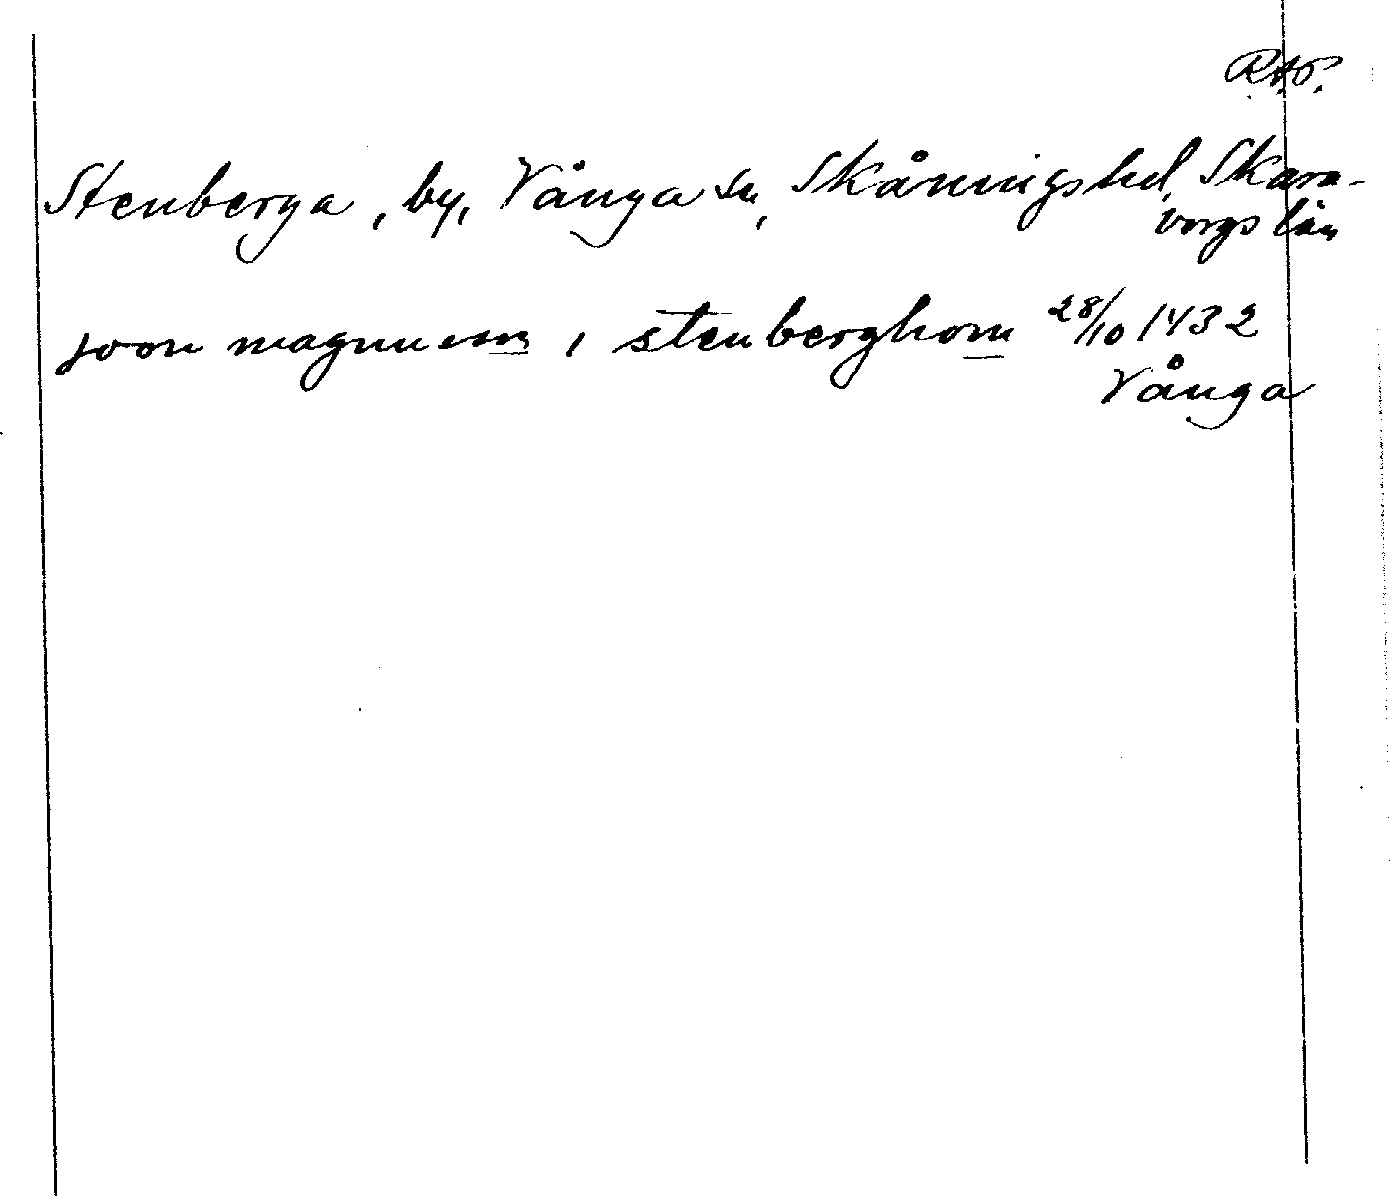 R.A.P.
Stenberga, by, Vånga sn, Skånings hd, Skara-
borgs län
joon magnusson i stenberghom 28/10 1432
Vånga